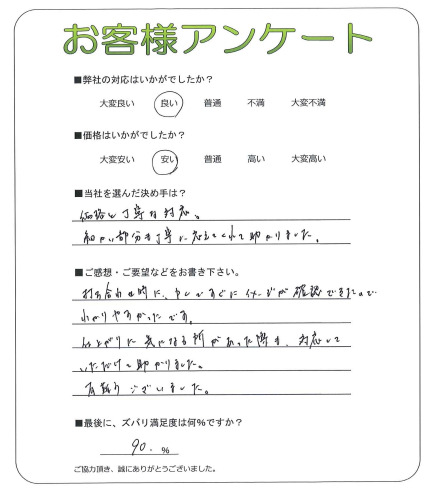 お客様アンケート
■弊社の対応はいかがでしたか？
大変良い 良い 普通 不満 大変不満
■価格はいかがでしたか？
大変安い 安い 普通 高い 大変高い
■当社を選んだ決め手は？
価格と丁寧な対応。
細かい部分も丁寧に応えてくれて助かりました。
■ご感想・ご要望などをお書き下さい。
打ち合わせ時に、すぐにイメージが確認できたので
わかりやすかったです。
仕上がりに気になる所があった際も、対応して
いただけて助かりました。
有難うございました。
■最後に、ズバリ満足度は何%ですか？
90. %
ご協力頂き、誠にありがとうございました。